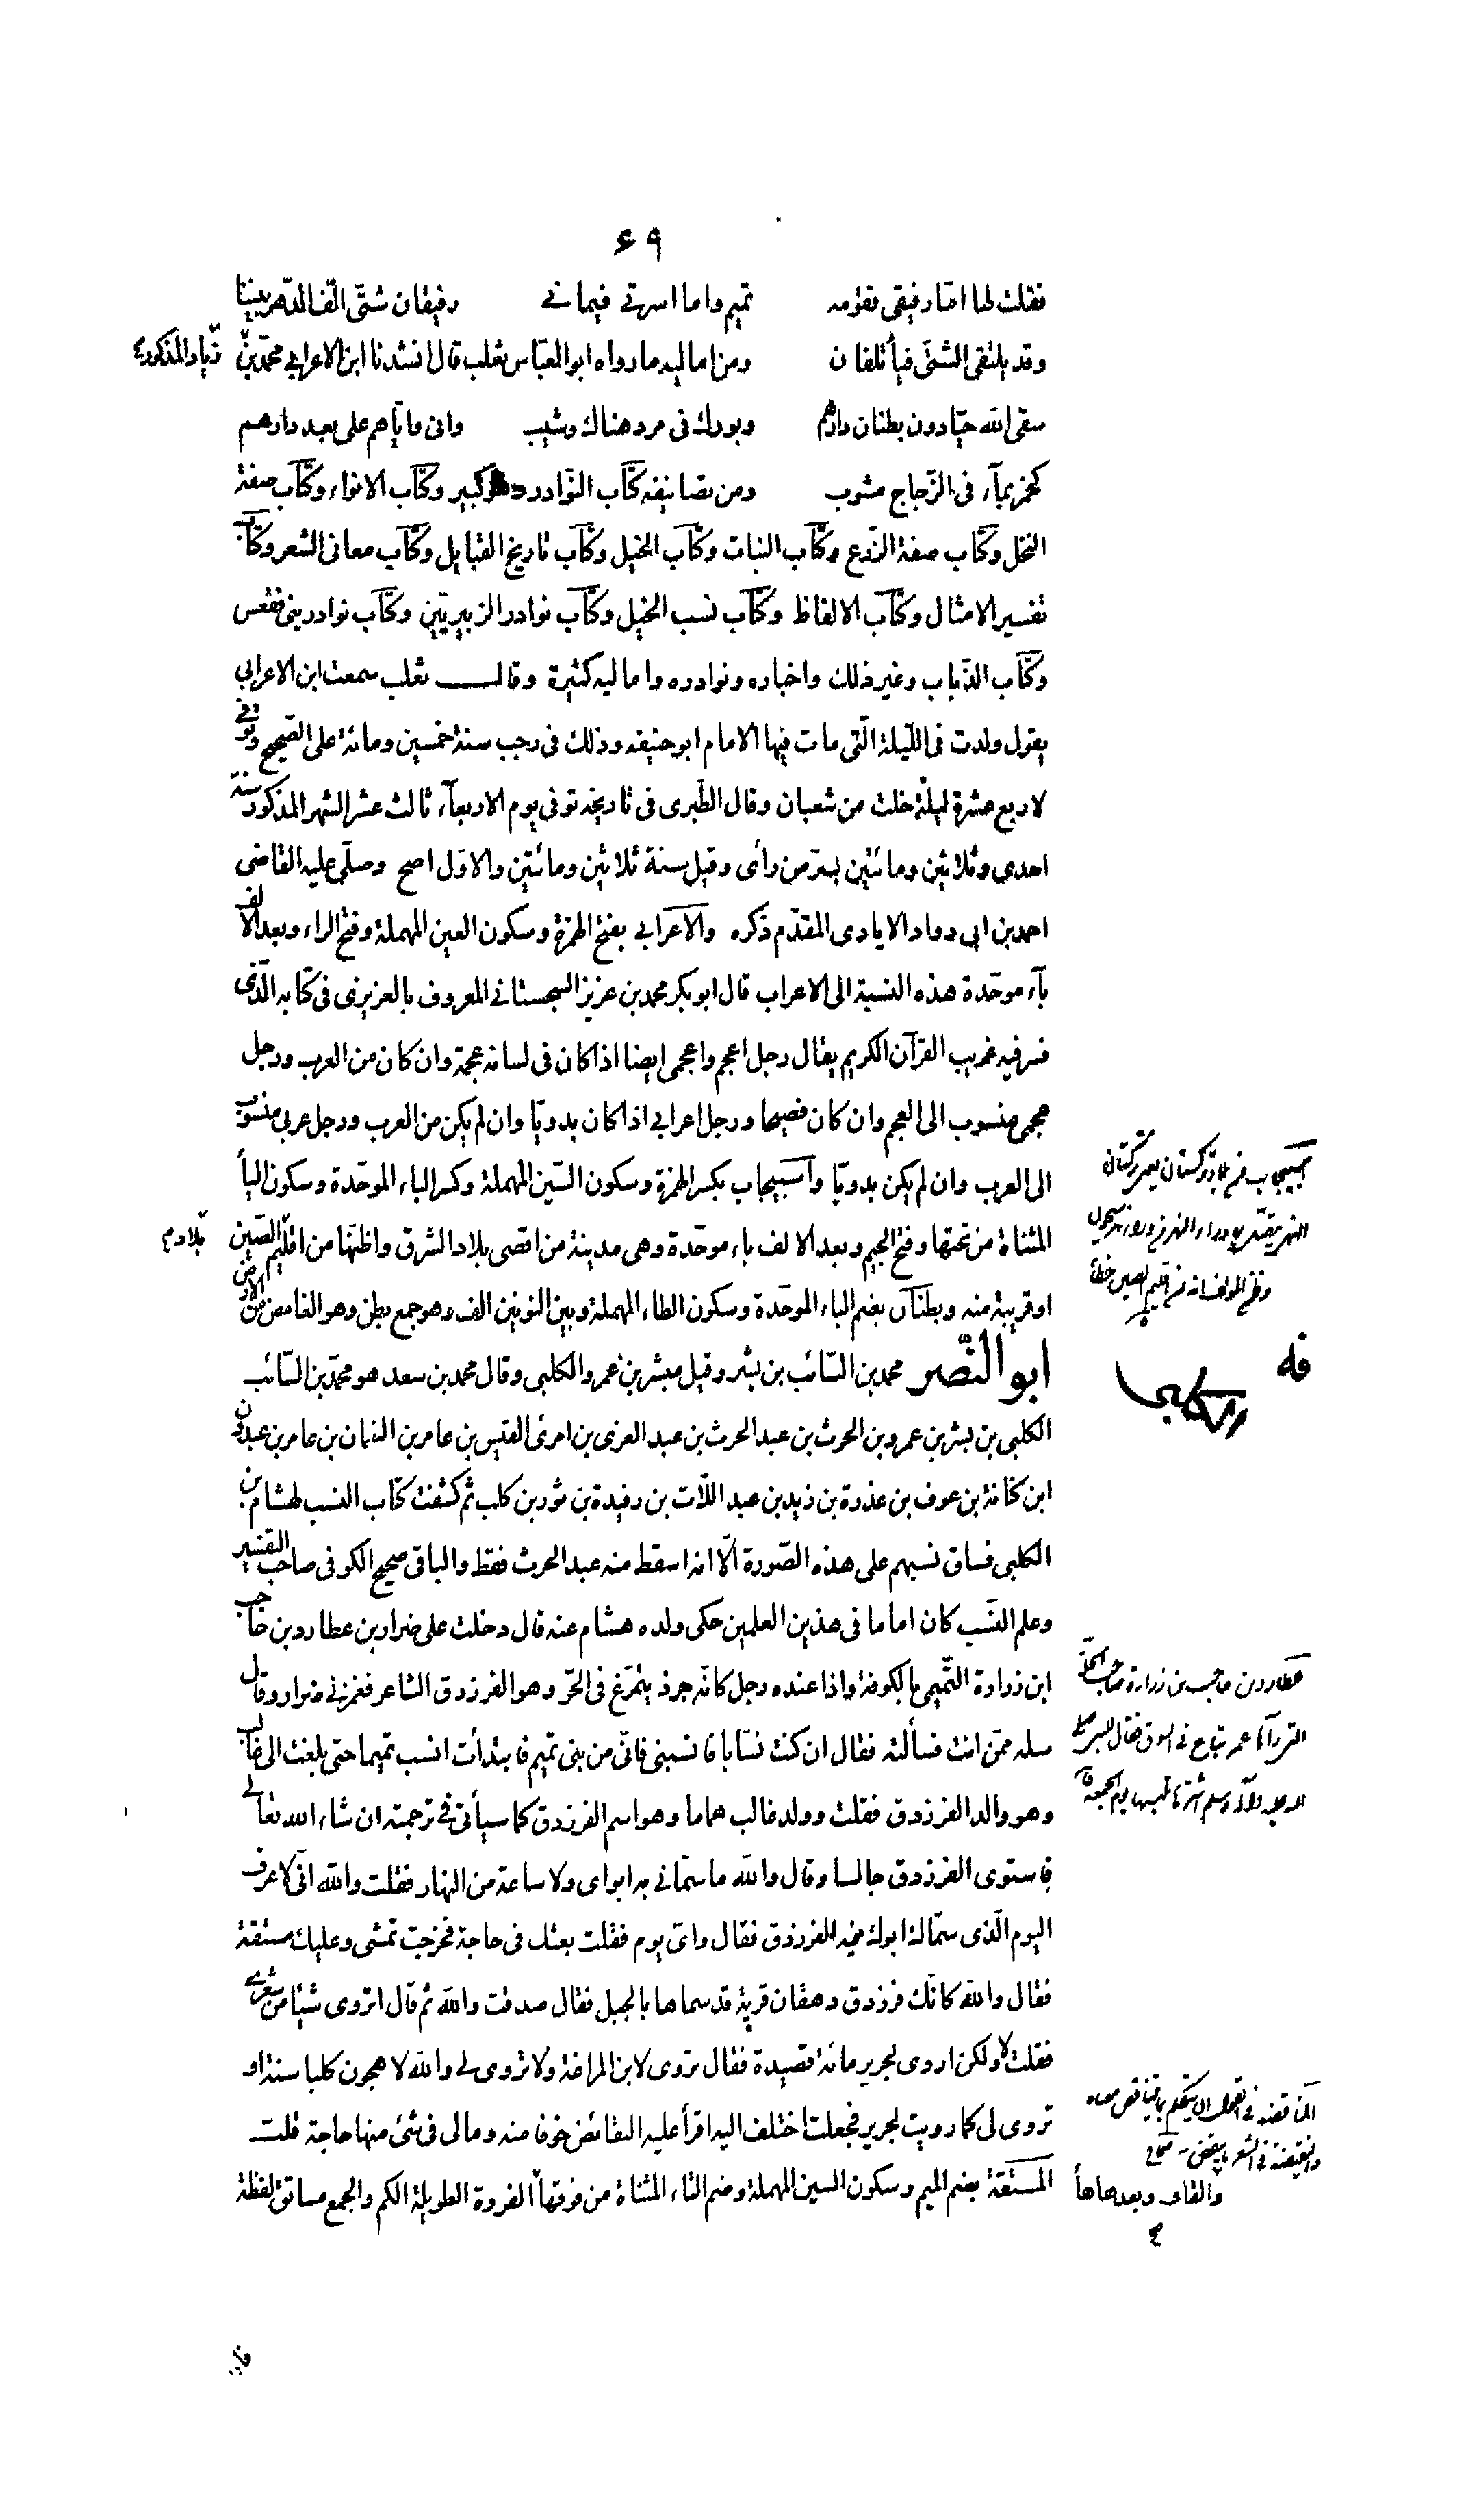 ٦٩
فقلت لها امّا رفيقى فقومه تميم واما اسرتى فيمانى رفيقان شتّى الّف الدّهر بيننا
وقد يلتقى الشتّى فيأتلفان ومن اماليه ما رواه ابو العبّاس ثعلب قال انشدنا ابن الاعرابى محمّد بن زياد المذكور
سقى الله حيّا دون بطنان دارهم وبورك فى مرد هناك وشيب وانى واياهم على بعد دارهم
كخمر بمآء فى الزّجاج مشوب ومن تصانيفه كتاب النّوادر وهو كبير وكتاب الانواء وكتاب صفة
النخل وكتاب صفة الزّرع وكتاب النبات وكتاب الخيل وكتاب تاريخ القبايل وكتاب معانى الشعر وكتاب
تفسير الامثال وكتاب الالفاظ وكتاب نسب الخيل وكتاب نوادر الزبيريّين وكتاب نوادر بنى فقعس
وكتاب الذّباب وغير ذلك واخباره ونوادره واماليه كثيرة وقال ثعلب سمعت ابن الاعرابى
يقول ولدت فى اللّيلة الّتى مات فيها الامام ابو حنيفه وذلك فى رجب سنة خمسين ومائة على الصّحيح وتوفى
لاربع عشرة ليلة خلت من شعبان وقال الطّبرى فى تاريخه توفى يوم الاربعآء ثالث عشر الشهر المذكور سنة
احدى وثلاثين ومائتين بسرّ من رأى وقيل سنة ثلاثين ومائتين والاوّل اصح وصلّى عليه القاضى
احمد بن ابى دواد الايادى المقدّم ذكره والاعرابى بفتح الهمزة وسكون العين المهملة وفتح الراء وبعد الالف
بآء موحّدة هذه النسبة الى الاعراب قال ابو بكر محمد بن عزيز السجستانى المعروف بالعزيزى فى كتابه الّذى
فسر فيه غريب القرآن الكريم يقال رجل اعجم واعجمى ايضا اذا كان فى لسانه عجمة وان كان من العرب ورجل
عجمى منسوب الى العجم وان كان فصيحا ورجل اعرابى اذا كان بدويّا وان لم يكن من العرب ورجل عربى منسوب
الى العرب وان لم يكن بدويّا واسبيجاب بكسر الهمزة وسكون السّين المهملة وكسر الباء الموحّدة وسكون اليأ
المثناة من تحتها وفتح الجيم وبعد الالف باء موحّدة وهى مدينة من اقصى بلاد الشرق واظنّها من اقليم الصّين
بلاد
او قريبة منه وبطنان بضم الباء الموحّدة وسكون الطاء المهملة وبين النونين الف وهو جمع بطن وهو الغامض من الارض
ابو النّضر محمد بن السّائب بن بشر وقيل مبشر بن عمرو الكلبى وقال محمد بن سعد هو محمّد بن السّائب
الكلبى
الكلبى بن بشر بن عمرو بن الحرث بن عبد الحرث بن عبد العزى بن امرئ القيس بن عامر بن النعمان بن عامر بن عبدون
ابن كنانة بن عوف بن عذرة بن زيد بن عبد اللّات بن رفيدة بن ثور بن كلب ثم كشفت كتاب النسب لهشام بن
الكلبى فساق نسبهم على هذه الصّورة الّا انه اسقط منه عبد الحرث فقط والباقى صحيح الكوفى صاحب التفسير
وعلم النّسب كان اماما فى هذين العلمين حكى ولده هشام عنه قال دخلت على ضرار بن عطارد بن حاجب
ابن زرارة التّميمى بالكوفة واذا عنده رجل كانّه جرذ يتمرّغ فى الحرّ وهو الفرزدق الشاعر فغمزنى ضرار وقال
سله ممّن انت فسألته فقال ان كنت نسّابا فانسبنى فانّى من بنى تميم فابتدأت انسب تميما حتى بلغت الى غالب
وهو والد الفرزدق فقلت وولد غالب هماما وهو اسم الفرزدق كما سيأتى فى ترجمته ان شاء الله تعالى
فاستوى الفرزدق جالسا وقال والله ما سمّانى به ابواى ولا ساعة من النهار فقلت والله انّى لاعرف
اليوم الّذى سمّاك ابوك فيه الفرزدق فقال واىّ يوم فقلت بعثك فى حاجة فخرجت تمشى وعليك مستقة
فقال والله كانّك فرزدق دهقان قرية قد سماها بالجبل فقال صدقت والله ثم قال اتروى شيئا من شعرى
فقلت لا ولكن اروى لجرير مائة قصيدة فقال تروى لابن المراغة ولا تروى لى والله لاهجون كلبا سنة او
تروى لى كما رويت لجرير فجعلت اختلف اليه اقرأ عليه النقائض خوفا منه ومالى فى شئ منها حاجة قلت
المستقة بضم الميم وسكون السين المهملة وضم التاء المثناة من فوقها الفروة الطويلة الكم والجمع مساتق لفظة
والقاف وبعدها هأ